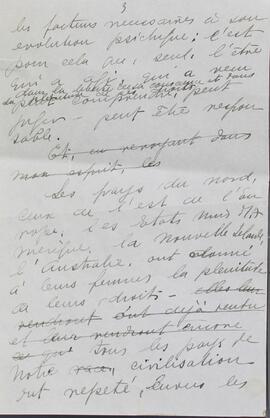 3
les facteurs nécessaires à son
evolution psichique: c'est
pour cela que, seul, l'être
qui a agi, qui a vécu
dans la liberté de sa conscience et dans
la plénitude de ses droits
comprendre, peut
juger - peut être respon
sable.
Et, en revoyant dans
mon esprit, les
Les pays du nord,
ceux de l'est de l'Eu
rope, les Etats Unis d'A
merique, la Nouvelle Zelande
l'Australie, ont donné
à leurs femmes la plenitude
de leurs droits - elles leur
rendront ont déjà rendu
et leur rendront encore
ce qui tous les pays de
notre race, civilisation
ont repeté, envers les